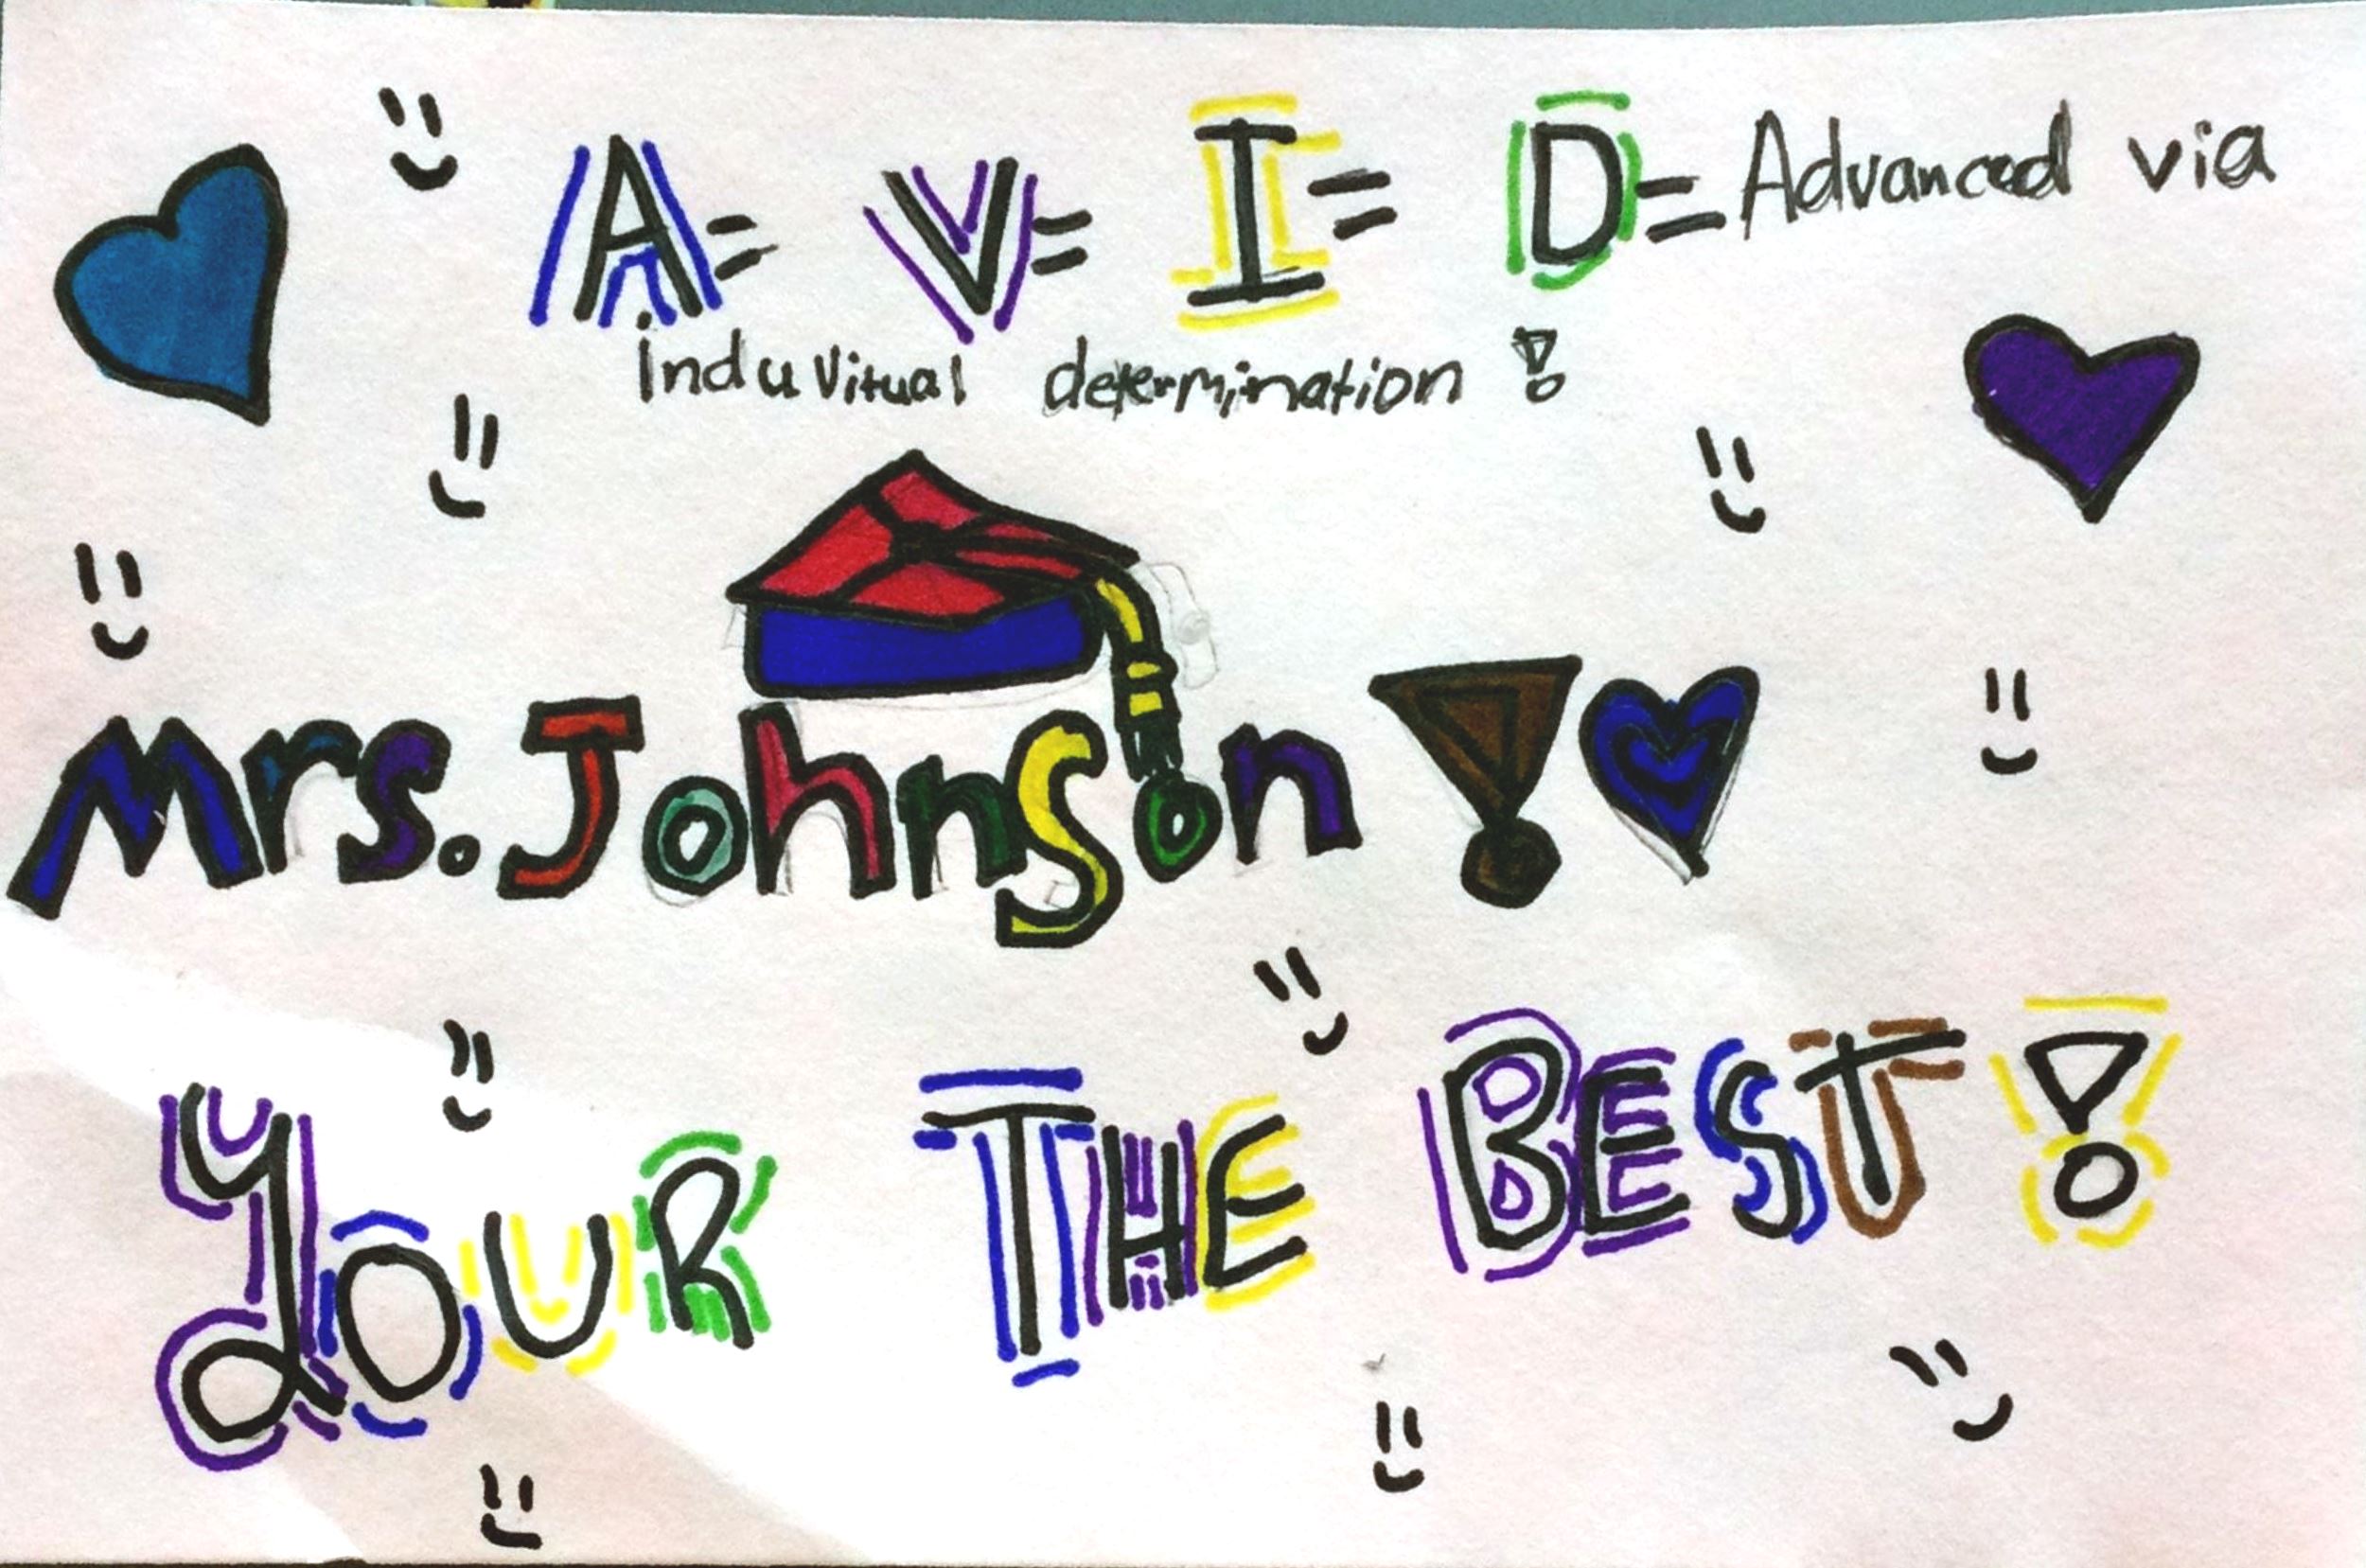 A= V= I= D= Advanced via
induvitual determination!
Mrs. Johnson!
YOUR THE BEST!